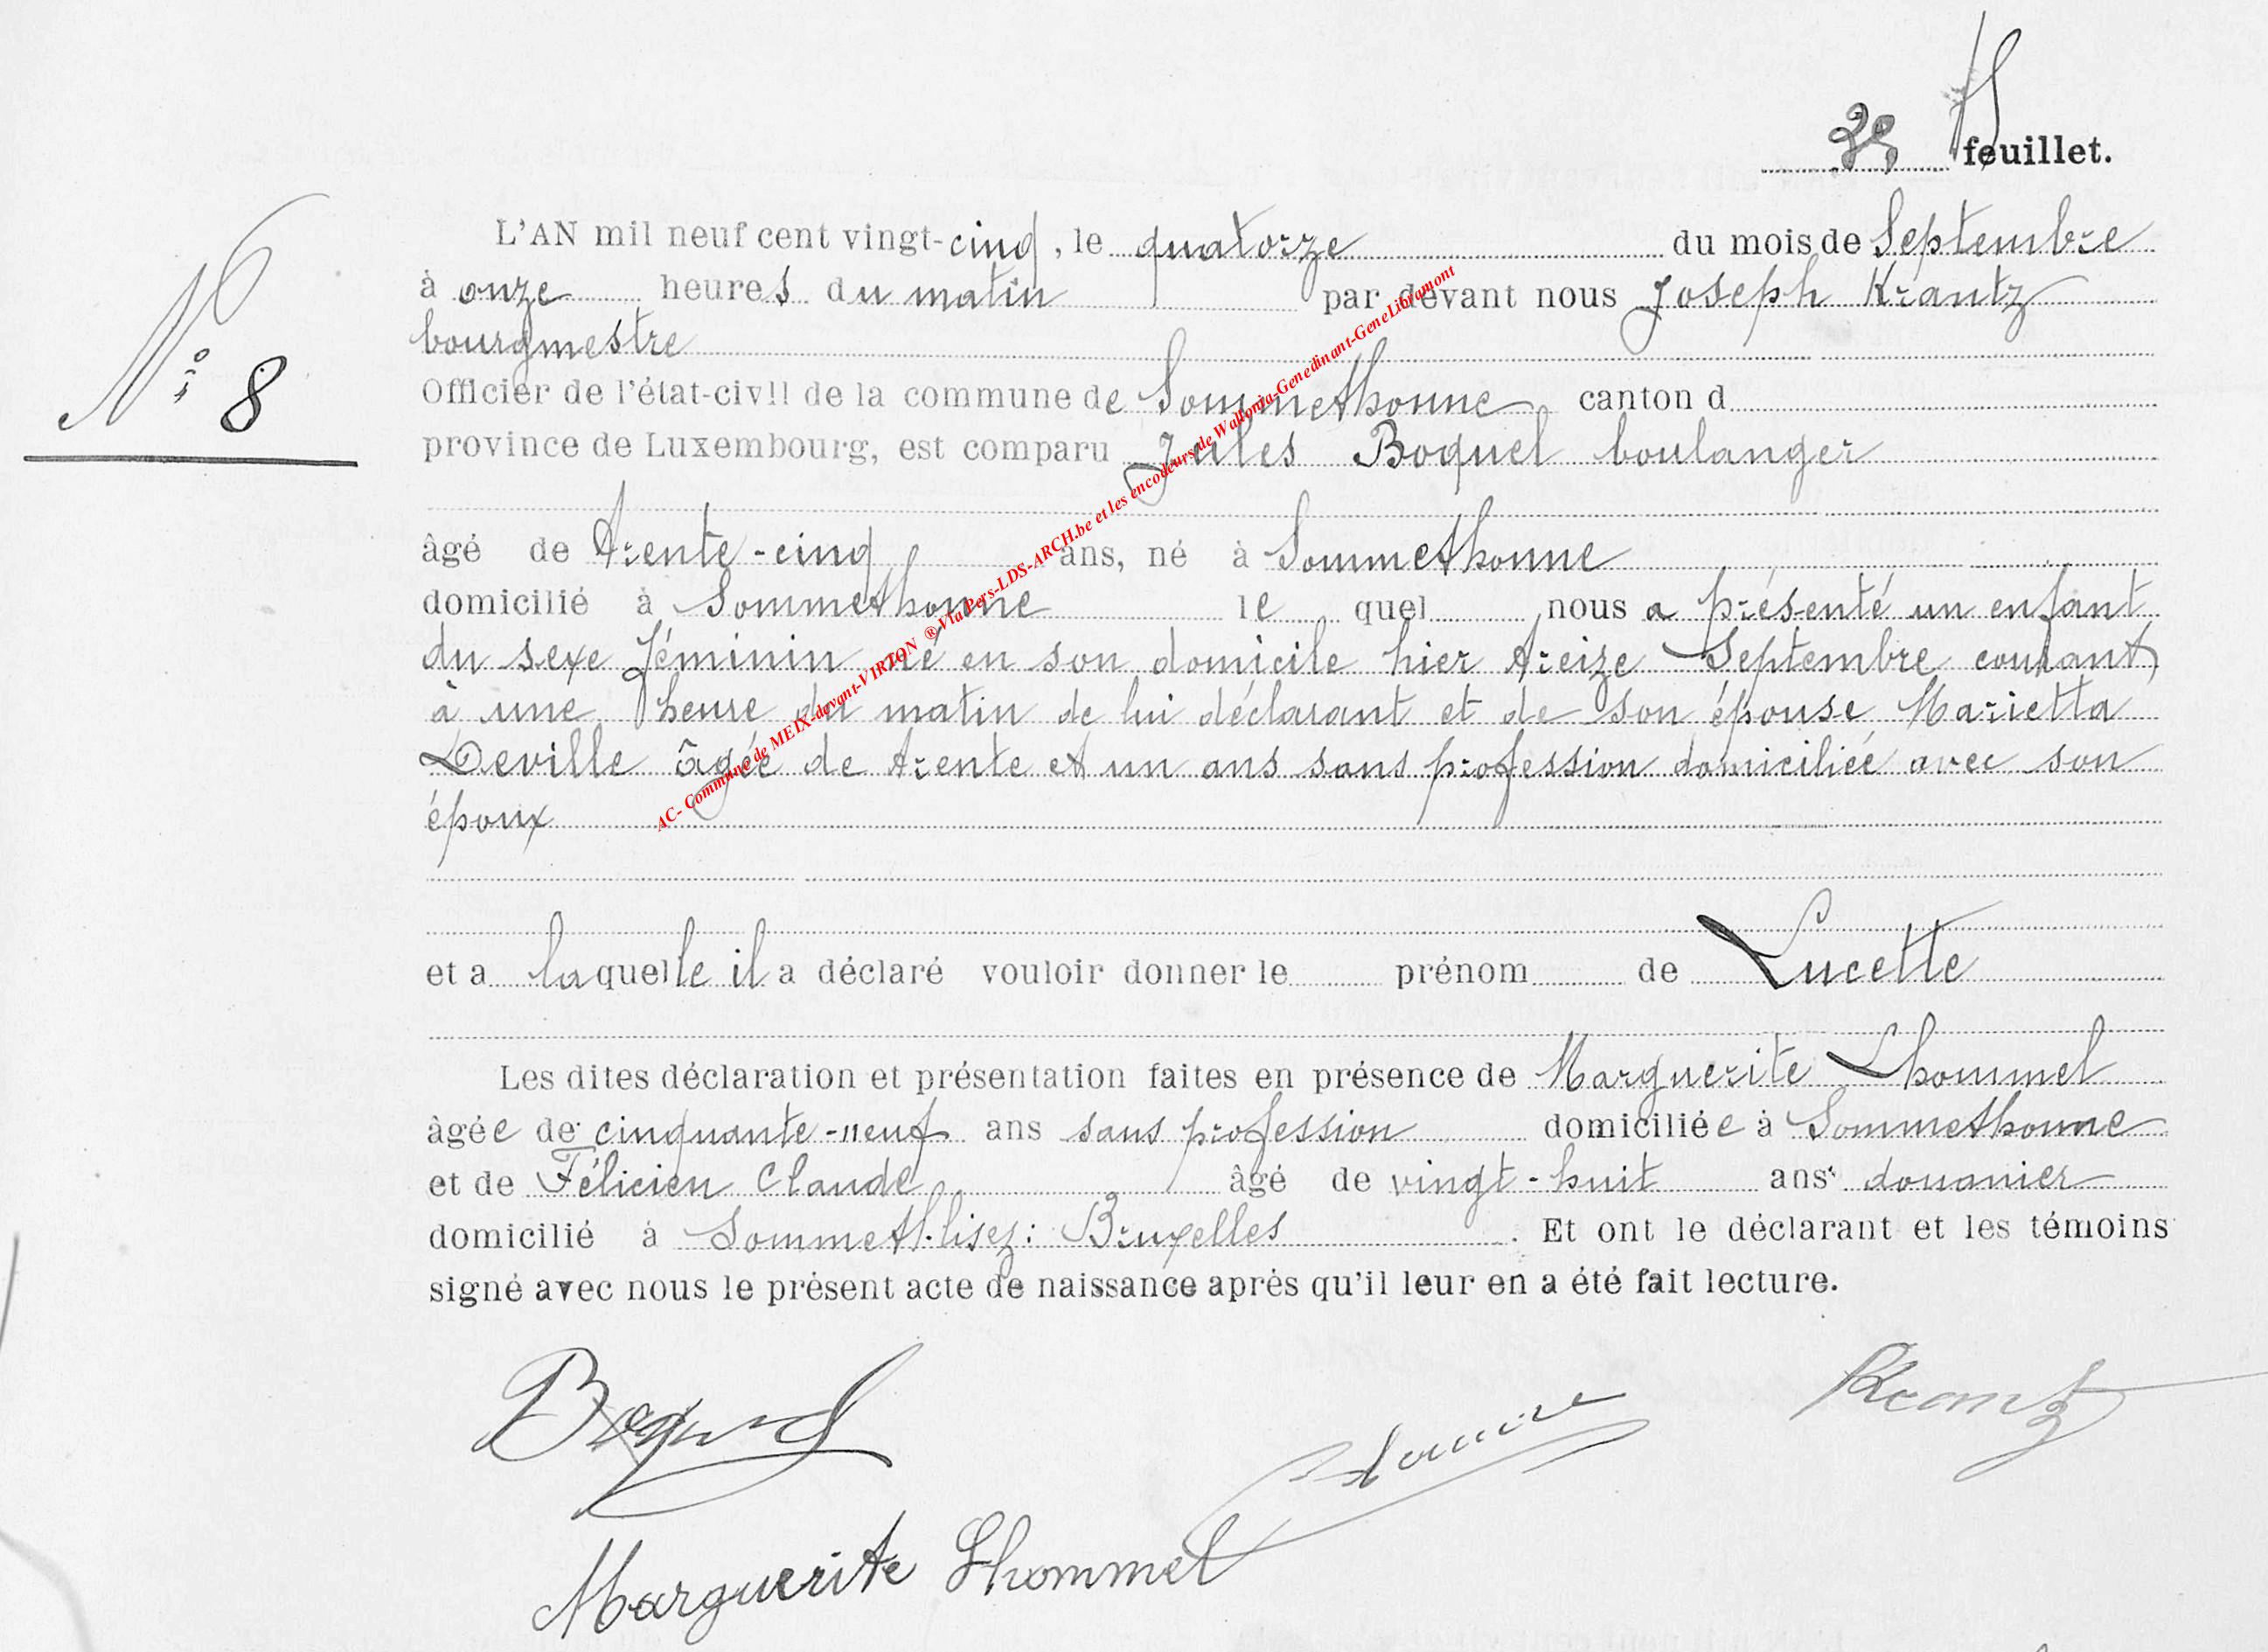 feuillet.
L'AN mil neuf cent vingt-cinq, le quatorze du mois de Septembre
N° 8
à onze heures du matin par devant nous Joseph Krantz
bourgmestre
Officier de l'état-civil de la commune de Sommethonne canton d
province de Luxembourg, est comparu Jules Boquel boulanger
âgé de trente-cinq ans, né à Sommethonne
domicilié à Sommethonne le quel nous a présenté un enfant
du sexe féminin né en son domicile hier treize Septembre courant
à une heure du matin de lui déclarant et de son épouse Marietta
Deville âgée de trente et un ans sans profession domiciliée avec son
époux
AC- Commune de MEIX-devant-VIRTON ® Via Pers-LDS-ARCH.be et les encodeurs de Wallonia-Genedinant-GeneLibramont
et a laquelle il a déclaré vouloir donner le prénom de Lucette
Les dites déclaration et présentation faites en présence de Marguerite Lhommel
âgée de cinquante-neuf ans sans profession domiciliée à Sommethonne
et de Félicien Claude âgé de vingt-huit ans douanier
domicilié à Sommeth. lisez: Bruxelles. Et ont le déclarant et les témoins
signé avec nous le présent acte de naissance après qu'il leur en a été fait lecture.
Boquel
Krantz
Marguerite Lhommel